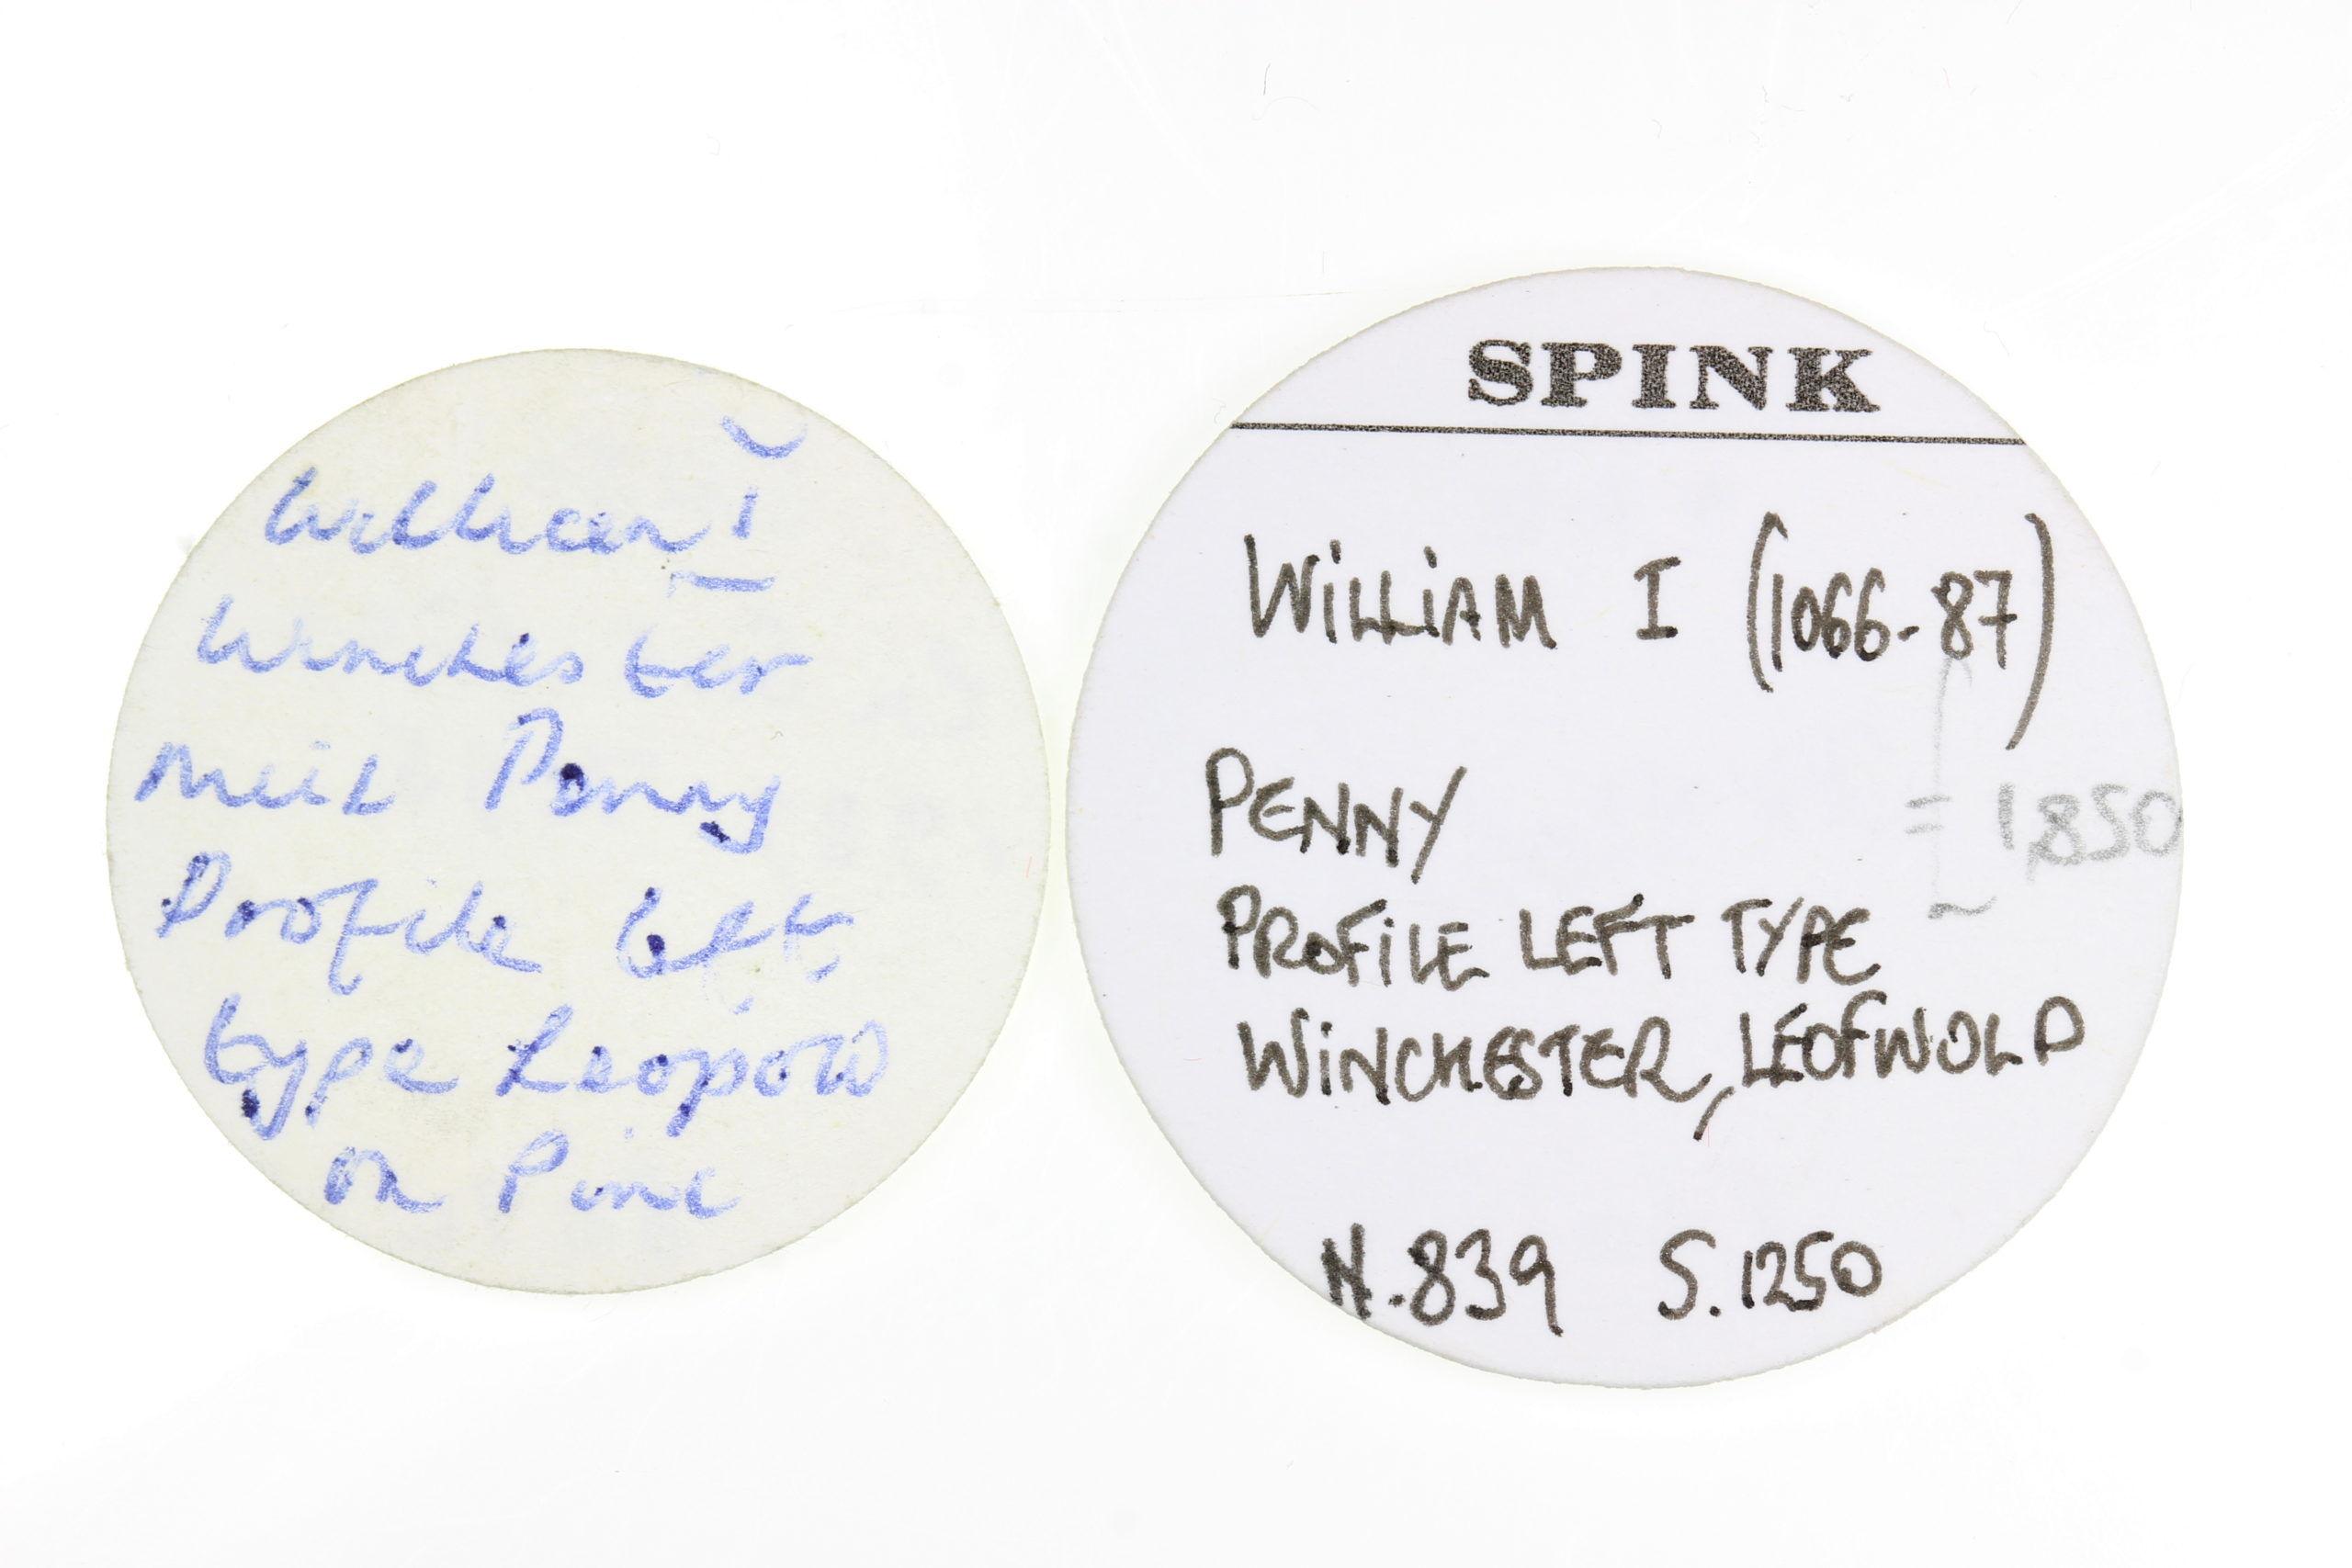 William I
Winchester
Mint Penny
Profile left
type Leopold
on Pinc
SPINK
WILLIAM I (1066-87)
PENNY
= 1,850
PROFILE LEFT TYPE
WINCHESTER, LEOFWOLD
N.839 S.1250